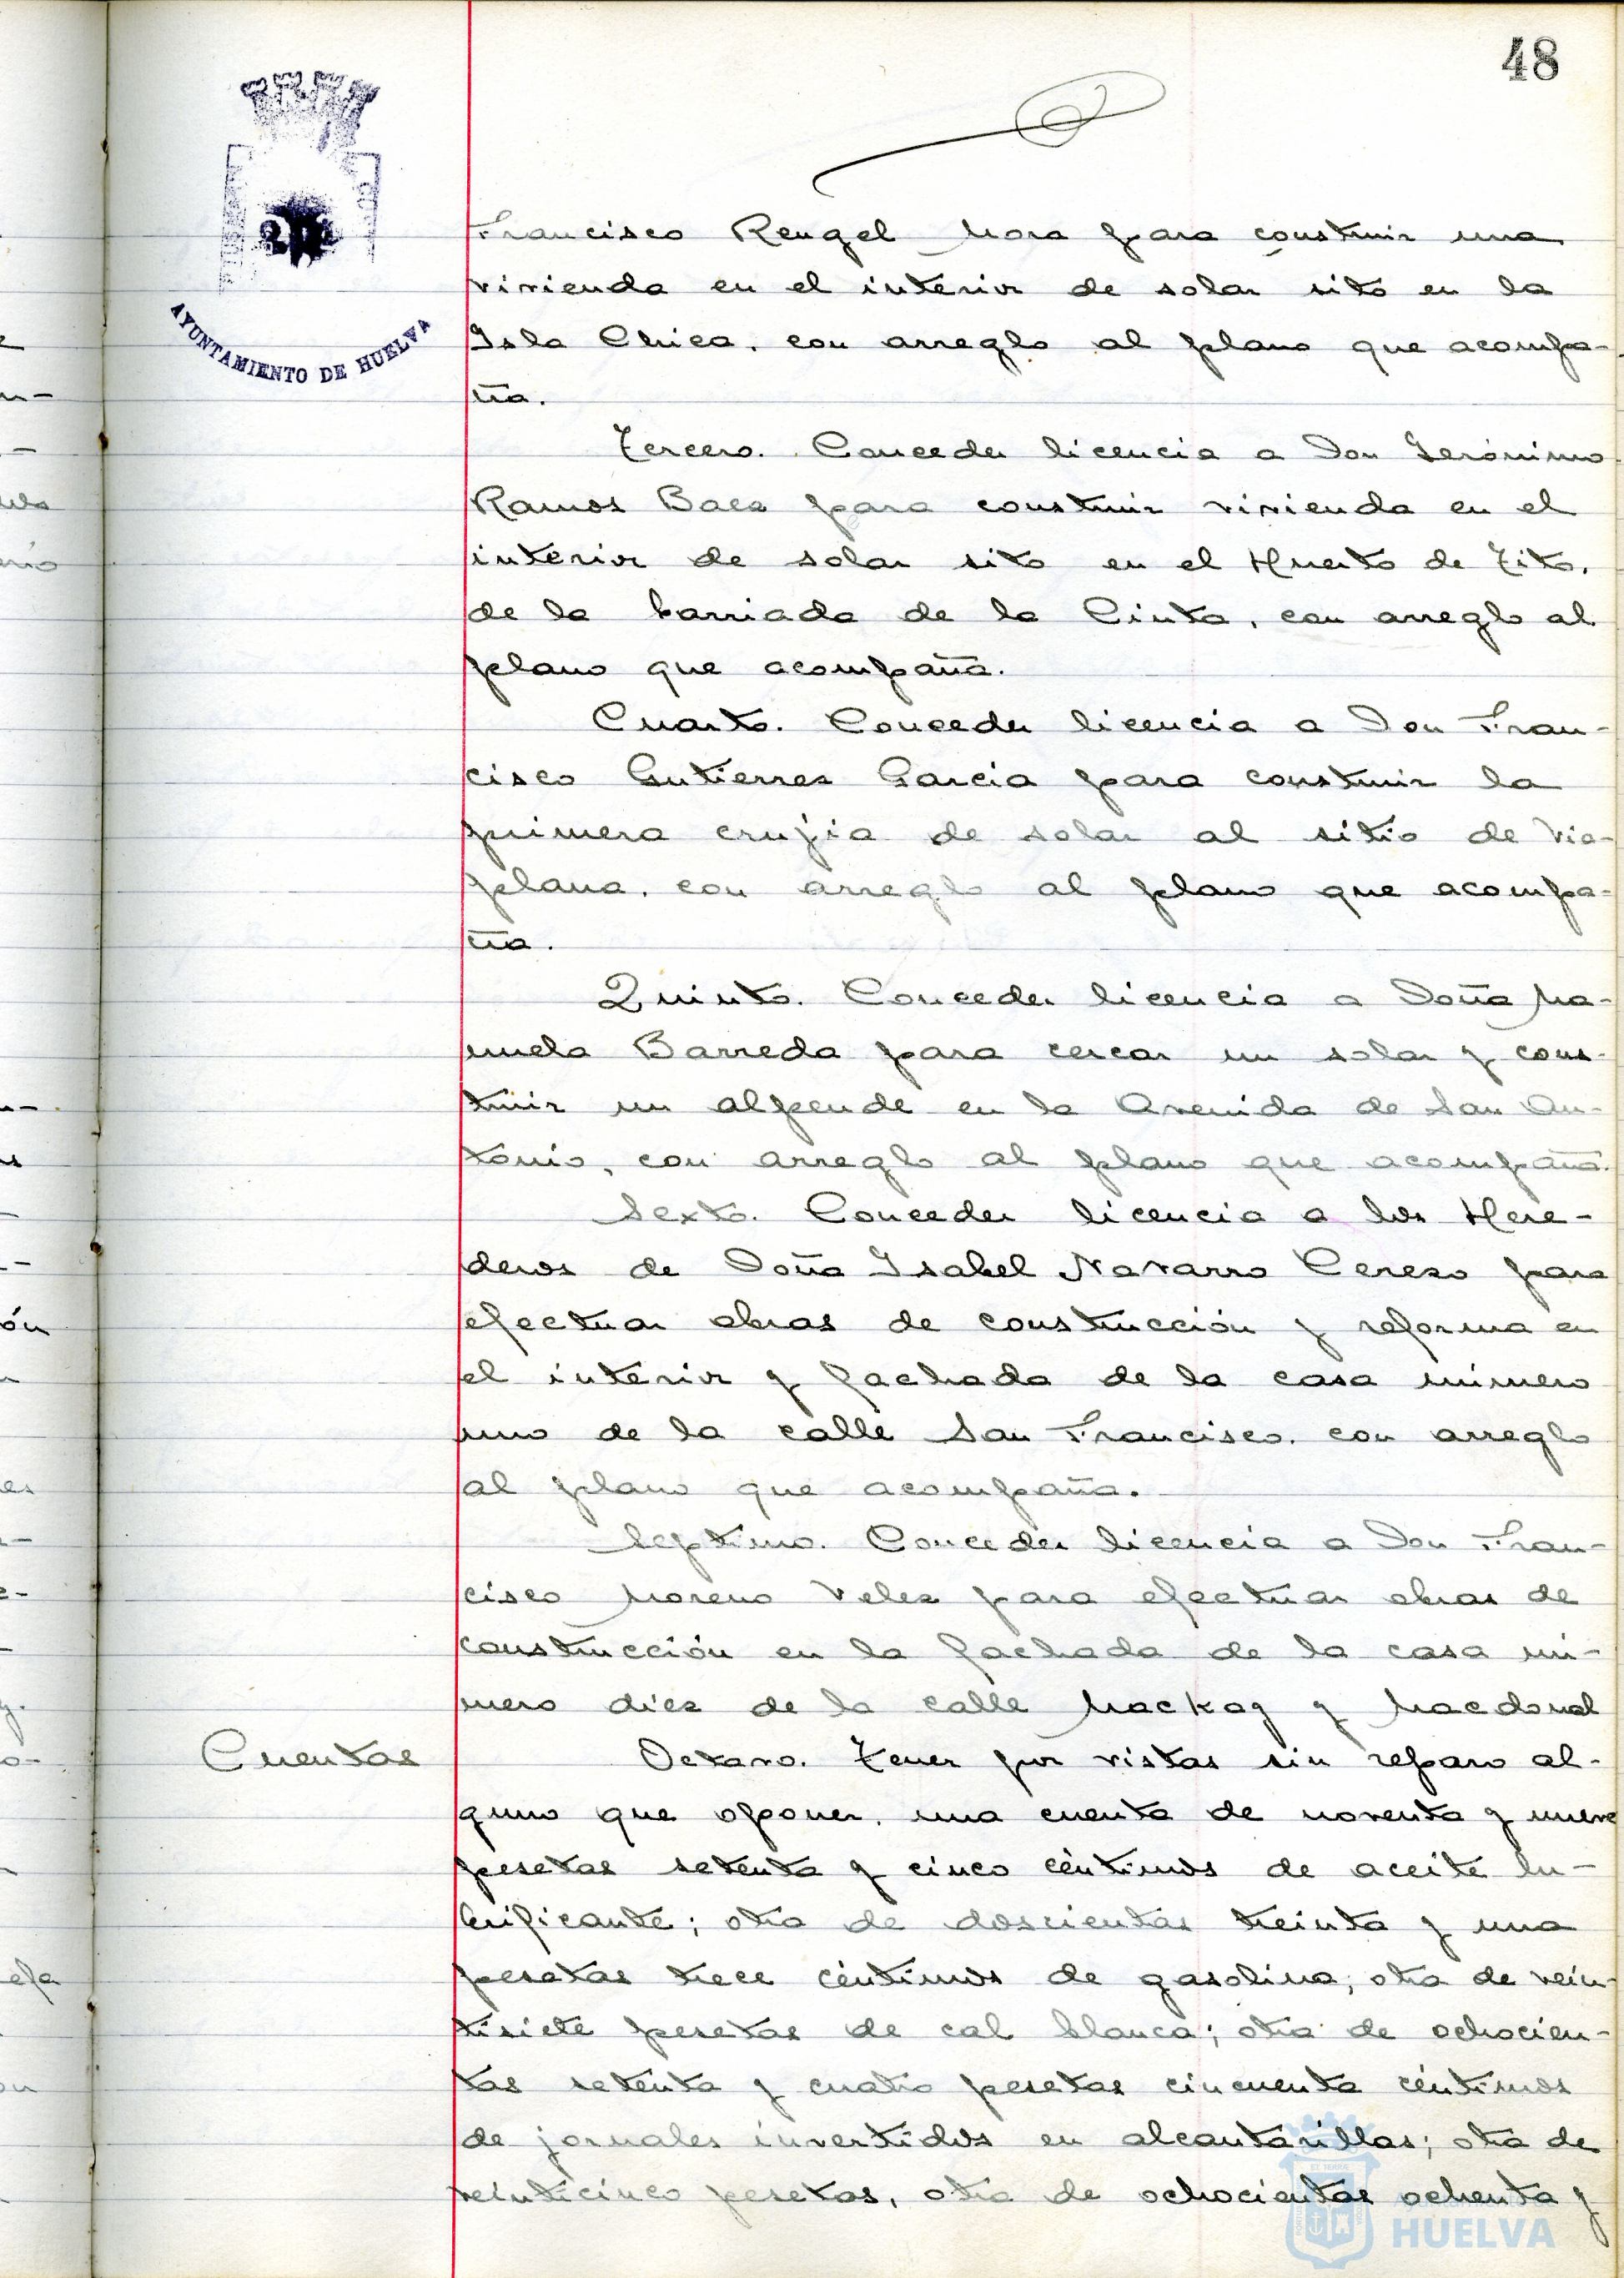 48
AYUNTAMIENTO DE HUELVA
Francisco Rengel Mora para construir una
vivienda en el interior de solar sito en la
Isla Chica, con arreglo al plano que acompa-
ña.
Tercero. Conceder licencia a Don Gerónimo
Ramos Baez para construir vivienda en el
interior de solar sito en el Huerto de Tito,
de la barriada de la Cinta, con arreglo al
plano que acompaña.
Cuarto. Conceder licencia a Don Fran-
cisco Gutierrez Garcia para construir la
primera crujia de solar al sitio de Via-
plana, con arreglo al plano que acompa-
ña.
Quinto. Conceder licencia a Doña Ma-
nuela Barreda para cercar un solar y cons-
truir un alpende en la Avenida de San An-
tonio, con arreglo al plano que acompaña.
Sexto. Conceder licencia a los Here-
deros de Doña Isabel Navarro Cerezo para
efectuar obras de construcción y reforma en
el interior y fachada de la casa número
uno de la calle San Francisco, con arreglo
al plano que acompaña.
Septimo. Conceder licencia a Don Fran-
cisco Moreno Velez para efectuar obras de
construcción en la fachada de la casa nú-
mero diez de la calle Mackay y Macdonal
Cuentas
Octavo. Tener por vistas sin reparo al-
guno que oponer, una cuenta de noventa y nueve
pesetas setenta y cinco céntimos de aceite lu-
brificante; otra de doscientas treinta y una
pesetas trece céntimos de gasolina; otra de vein-
tisiete pesetas de cal blanca; otra de ochocien-
tas setenta y cuatro pesetas cincuenta céntimos
de jornales invertidos en alcantarillas; otra de
veinticinco pesetas, otra de ochocientas ochenta y
HUELVA